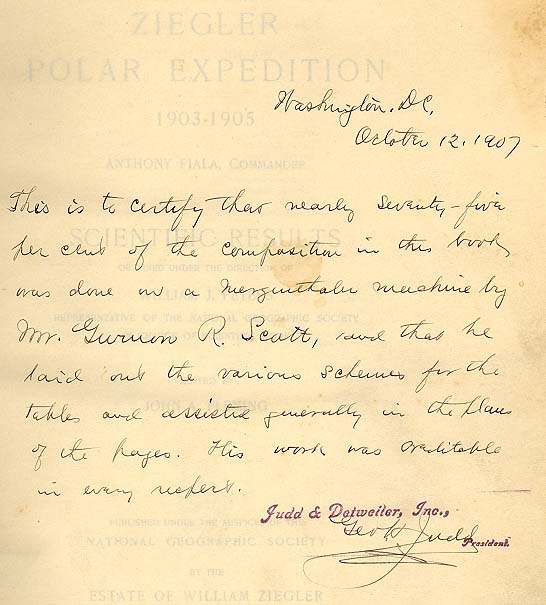 ZIEGLER
POLAR EXPEDITION
Washington, D.C.
1903-1905
October 12, 1907
ANTHONY FIALA, COMMANDER
This is to certify that nearly seventy-five
SCIENTIFIC RESULTS
per cent of the composition in this book
OBTAINED UNDER THE DIRECTION OF
was done on a Mergenthaler machine by
WILLIAM J. PETERS
REPRESENTATIVE OF THE NATIONAL GEOGRAPHIC SOCIETY
Mr. Gurnon R. Scott, and that he
laid out the various schemes for the
JOHN A. FLEMING
tables and assisted generally in the plan
of the pages. His work was creditable
in every respect.
Judd & Detweiler, Inc.,
PUBLISHED UNDER THE AUSPICES OF THE
Geo H Judd
President.
NATIONAL GEOGRAPHIC SOCIETY
BY THE
ESTATE OF WILLIAM ZIEGLER